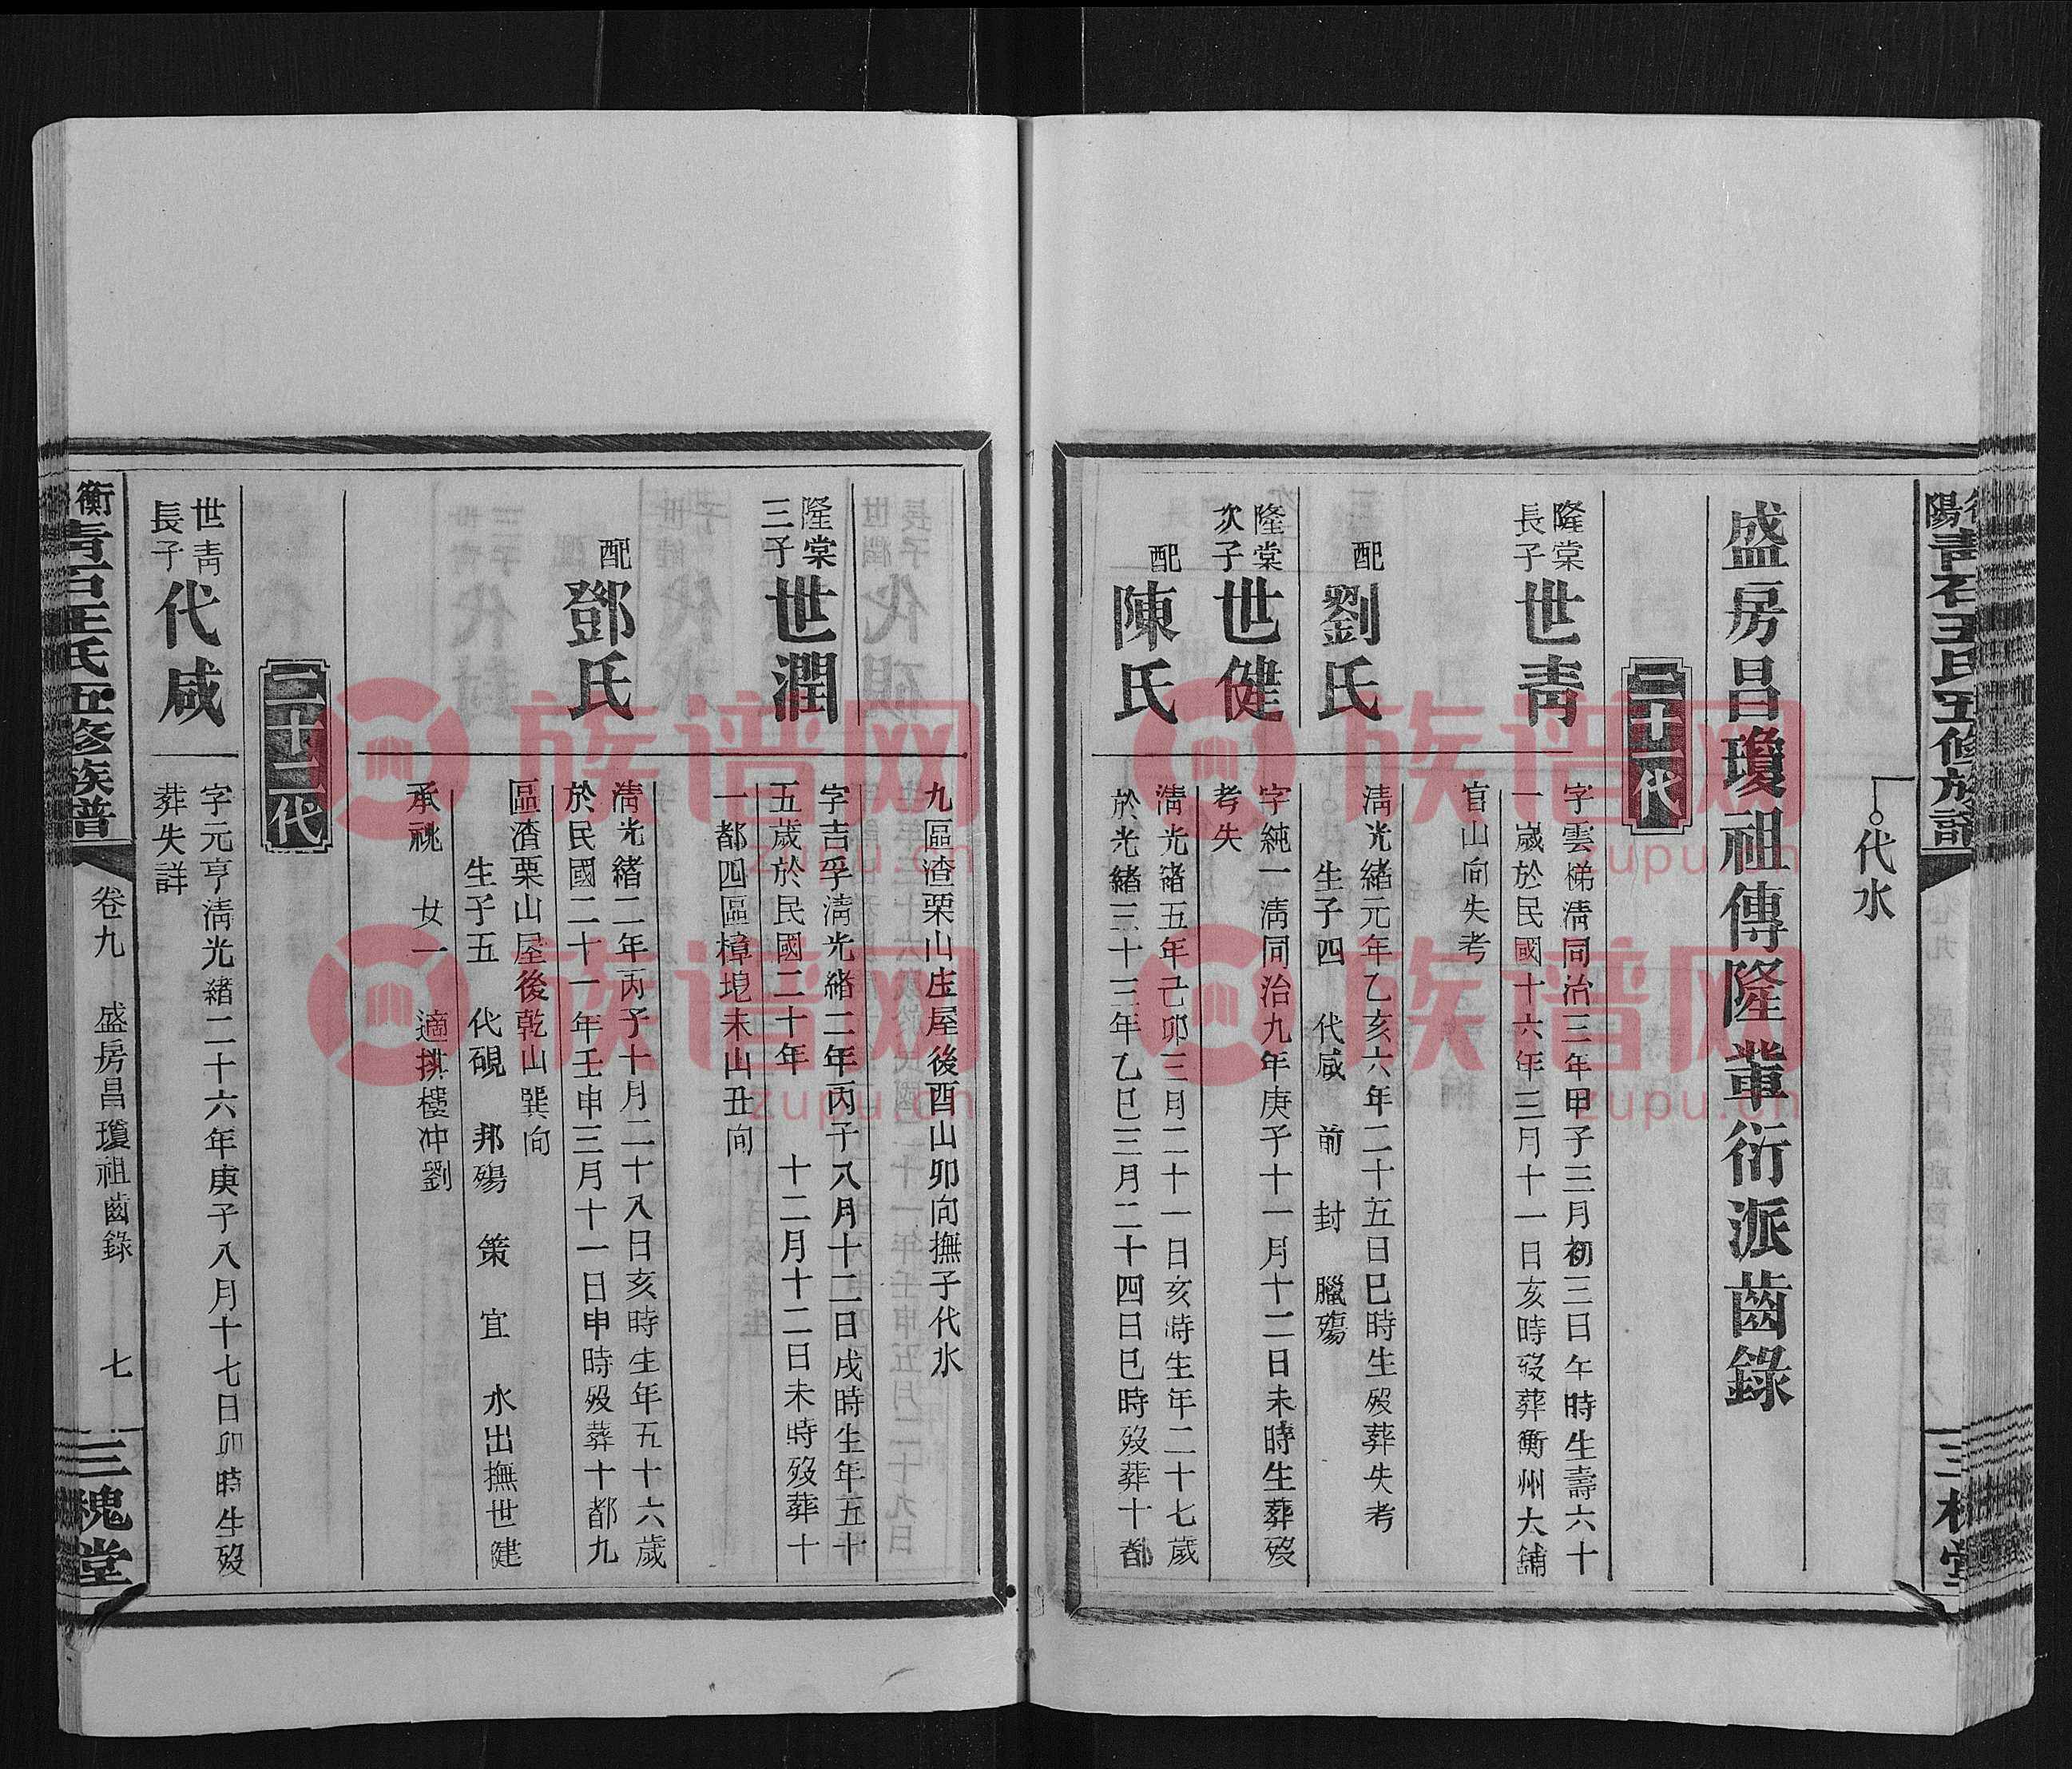 陽青石王氏五修族譜
三槐堂
代水
盛房昌瓊祖傳隆輩衍派齒錄
二十一代
隆棠長子
世青
字雲梯淸同治三年甲子三月初三日午時生壽六十
一歲於民國十六年三月十一日亥時歿葬衡州大鋪
官山向失考
配
劉氏
淸光緒元年乙亥六年二十五日巳時生歿葬失考
生子四 代咸 前 封 臘殤
隆棠次子
世健
字純一淸同治九年庚子十一月十二日未時生葬歿
考失
配
陳氏
淸光緒五年己卯三月二十一日亥時生年二十七歲
於光緒三十三年乙巳三月二十四日巳時歿葬十都
九區渣栗山庄屋後酉山卯向撫子代水
隆棠三子
世潤
字吉孚淸光緒二年丙子八月十二日戌時生年五十
五歲於民國二十年 十二月十二日未時歿葬十
一都四區樟堍未山丑向
配
鄧氏
淸光緒二年丙子十月二十八日亥時生年五十六歲
於民國二十一年壬申三月十一日申時歿葬十都九
區渣栗山屋後乾山巽向
生子五 代硯 邦殤 策 宜 水出撫世健
承祧 女一 適拱樓冲劉
二十二代
世青長子
代咸
字元亨淸光緒二十六年庚子八月十七日卯時生歿
葬失詳
衡青石王氏五修族譜
卷九 盛房昌瓊祖齒錄 七
三槐堂
族谱网
zupu.cn
族谱网
zupu.cn
族谱网
zupu.cn
族谱网
zupu.cn